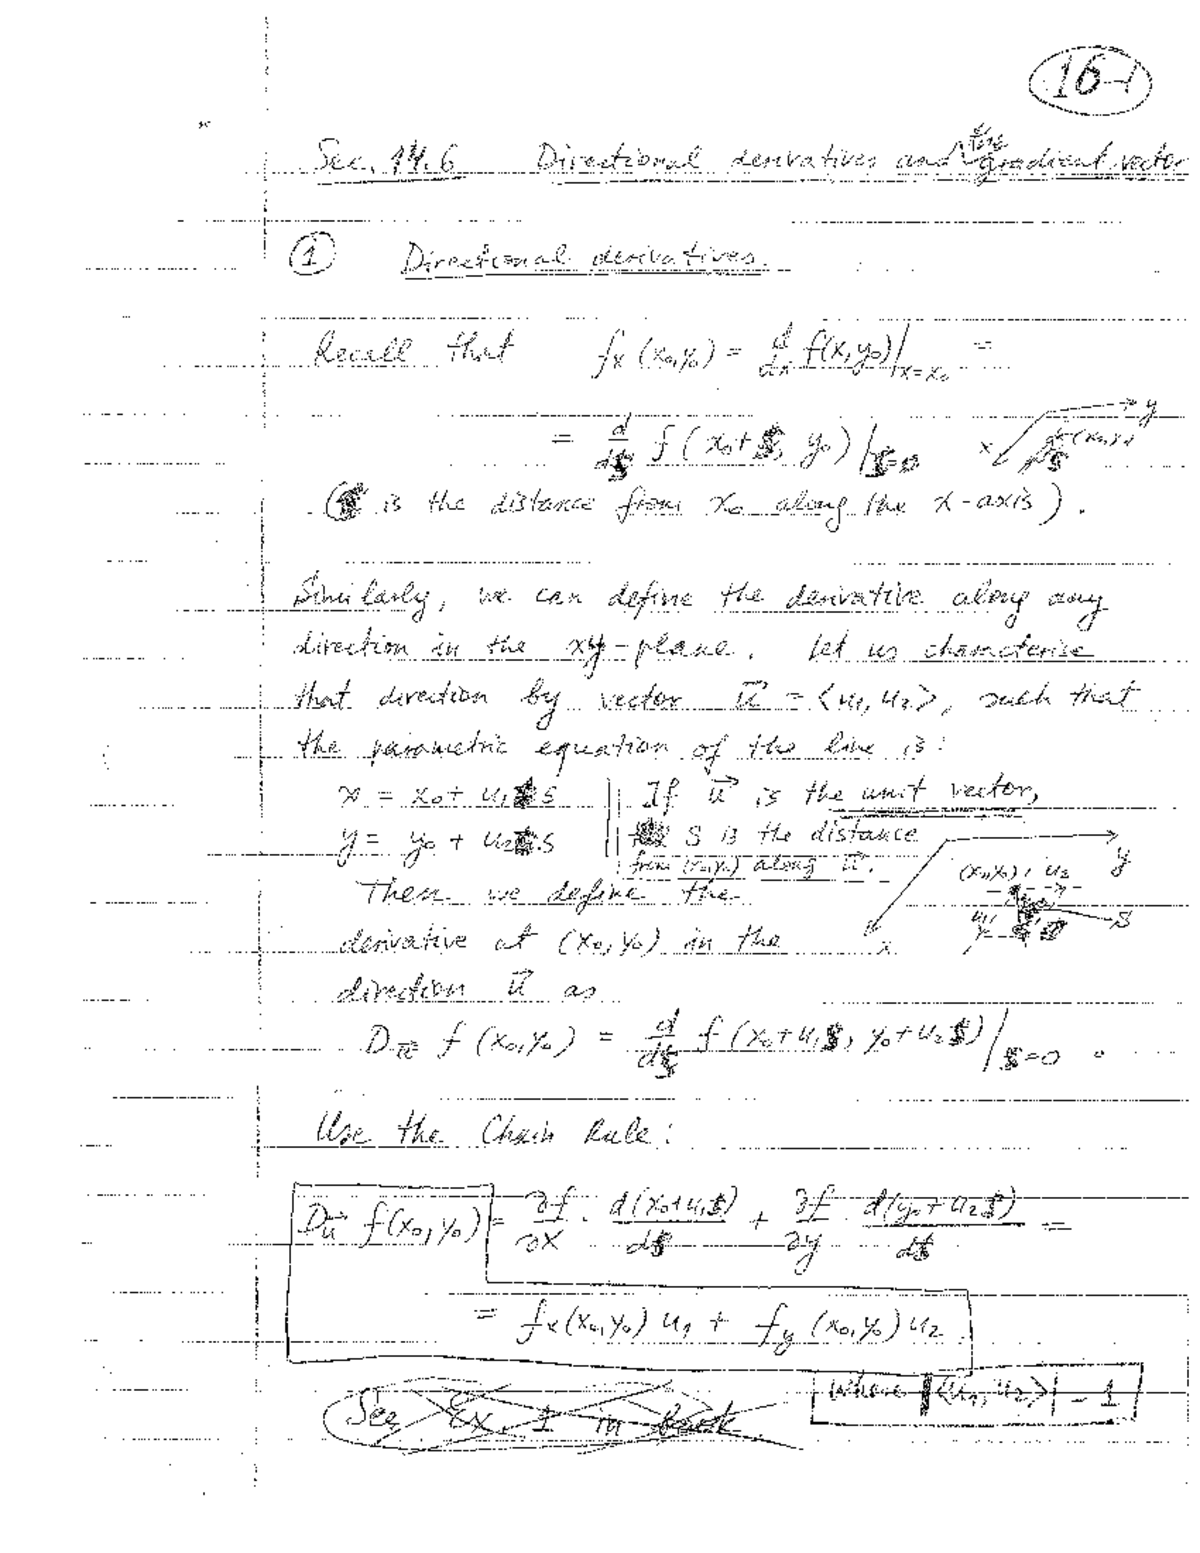 16-1
Sec. 14.6 Directional derivatives and the gradient vector
① Directional derivatives.
Recall that fx (x₀,y₀) = d/dx f(x,y₀)|x=x₀ =
= d/ds f (x₀+s, y₀)|s=0
y
x
s
(s is the distance from x₀ along the x-axis).
Similarly, we can define the derivative along any
direction in the xy-plane. Let us characterise
that direction by vector u⃗ = <u₁, u₂>, such that
the parametric equation of the line is:
x = x₀ + u₁·s || If u⃗ is the unit vector,
y = y₀ + u₂·s || s is the distance
from (x₀,y₀) along u⃗.
y
(x₀,y₀) u₂
u₁
s
x
Then we define the
derivative at (x₀, y₀) in the
direction u⃗ as
Du⃗ f (x₀,y₀) = d/ds f (x₀+u₁s, y₀+u₂s)|s=0 .
Use the Chain Rule:
Du⃗ f(x₀,y₀) = ∂f/∂x · d(x₀+u₁s)/ds + ∂f/∂y · d(y₀+u₂s)/ds =
= fx(x₀,y₀) u₁ + fy (x₀,y₀) u₂
where |<u₁, u₂>| = 1
See Ex. 1 in book